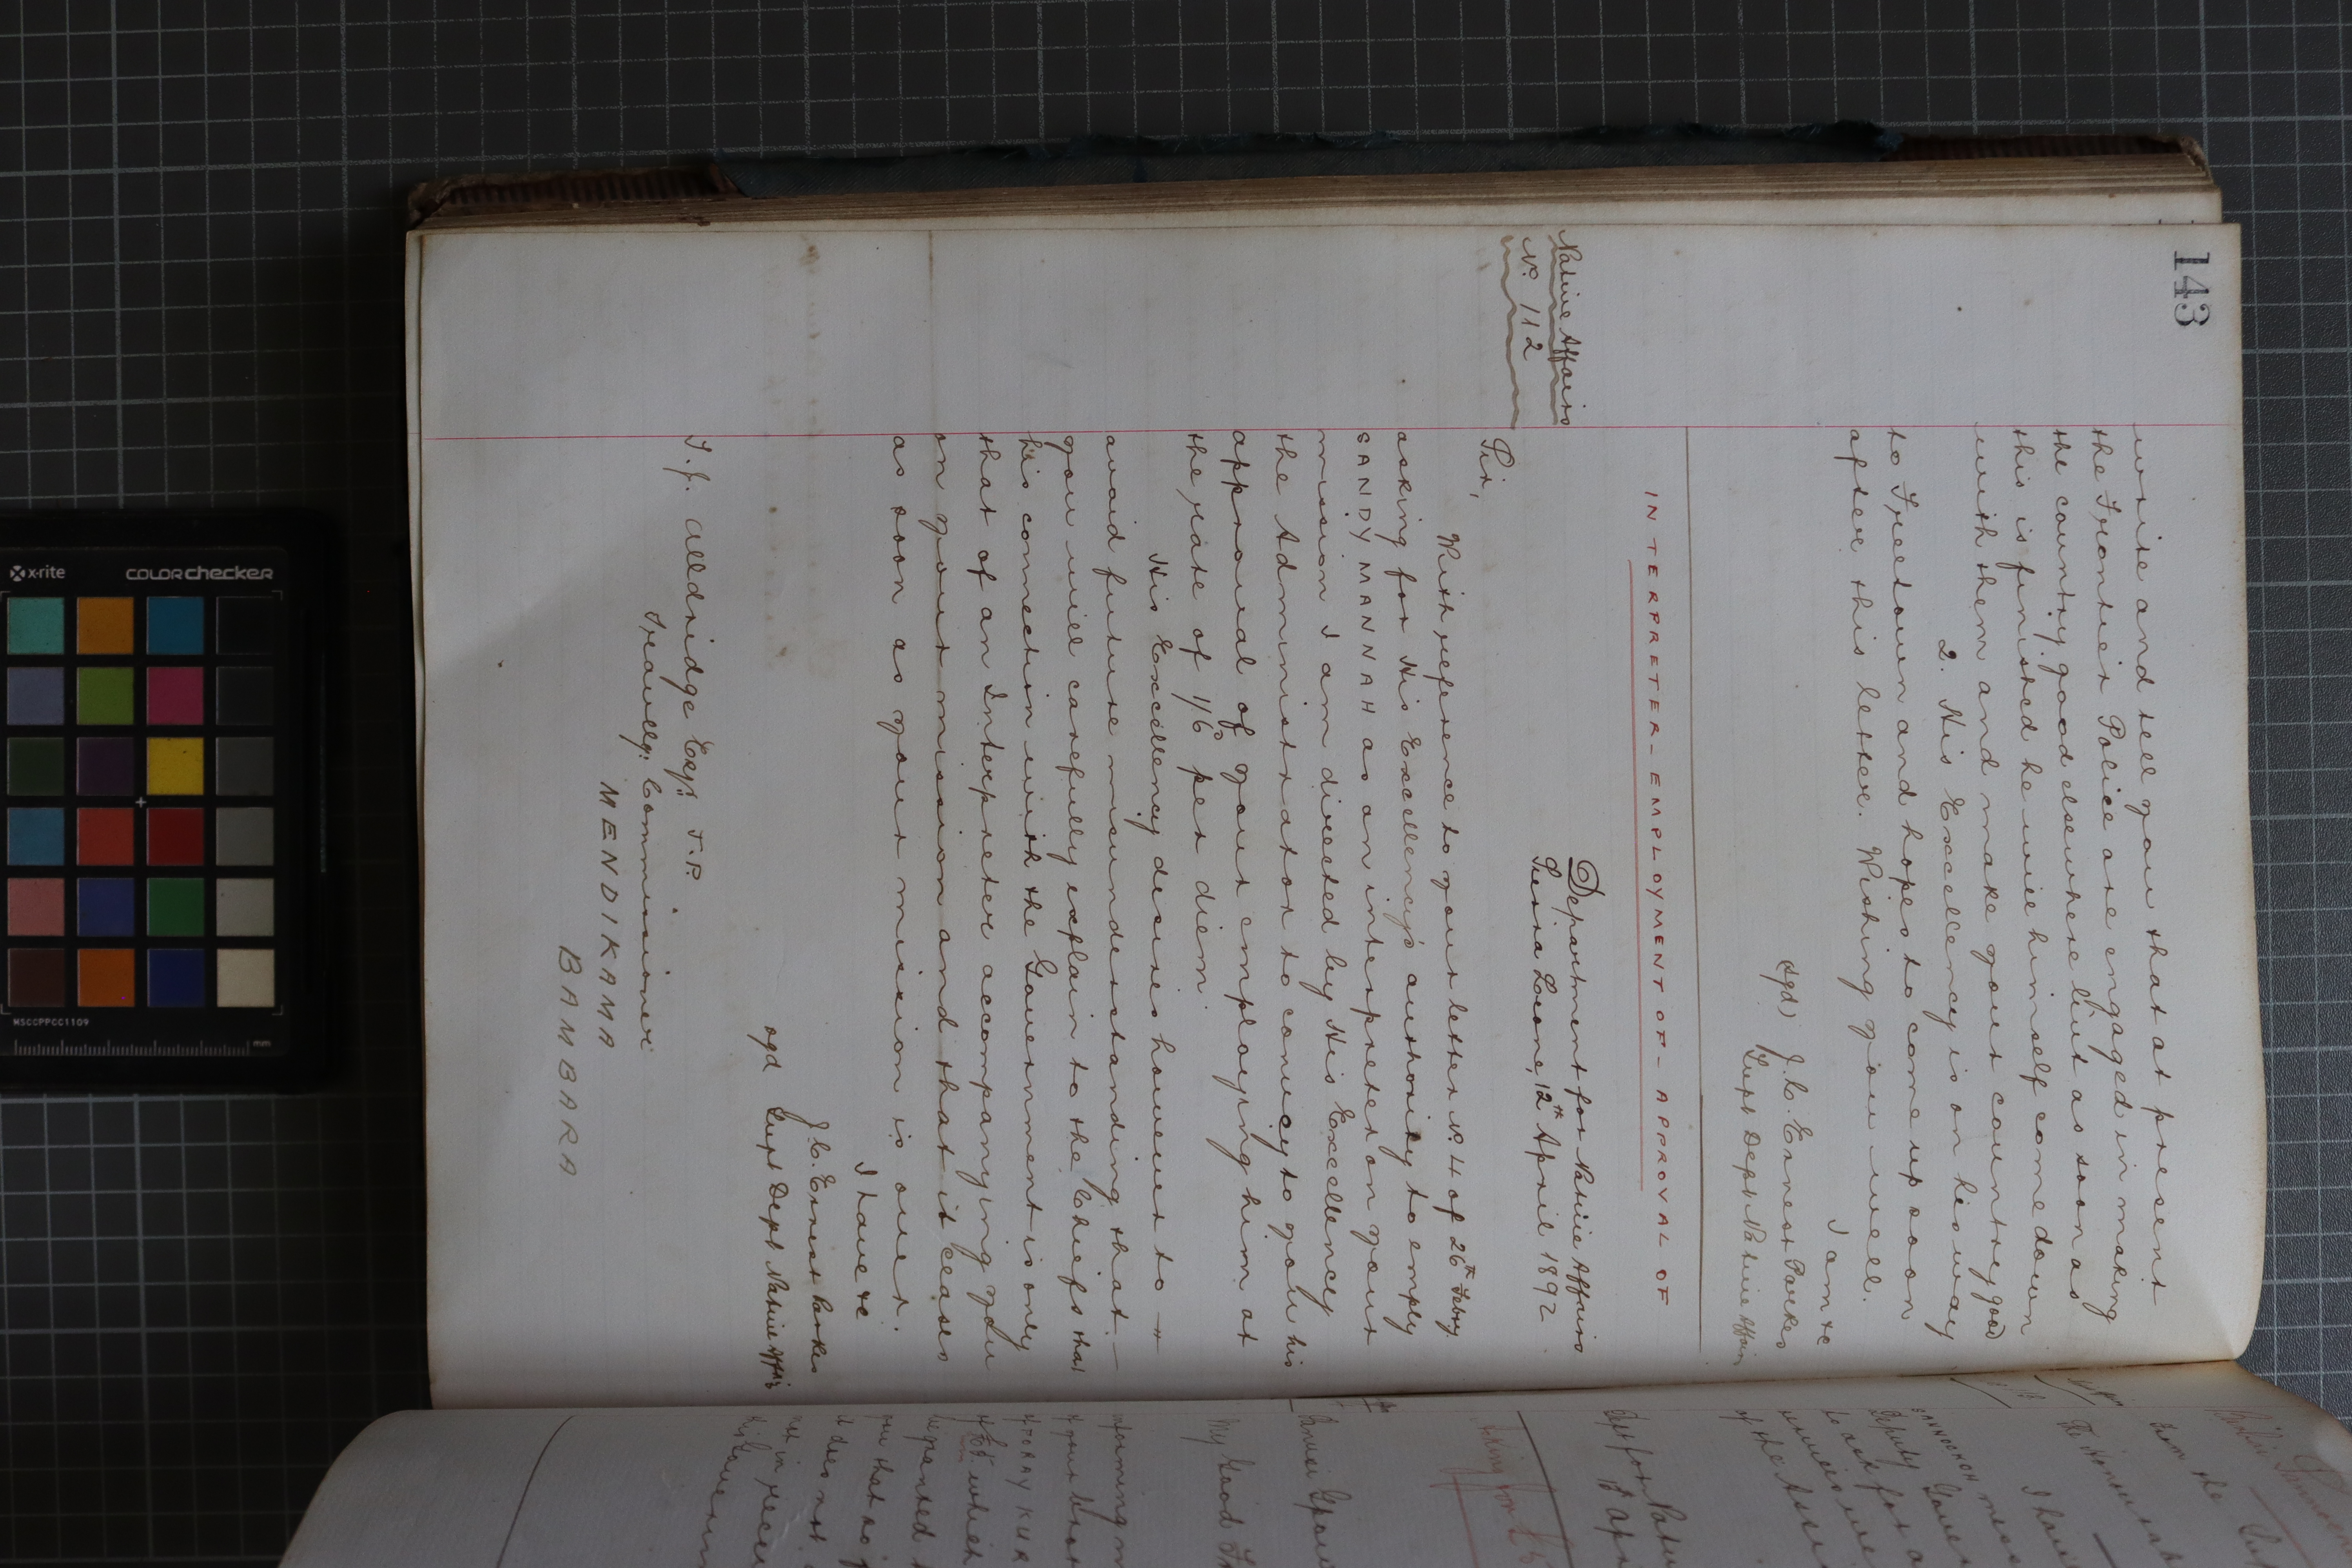 143
write and tell you that at present
the Frontier Police are engaged in making
the country good elsewhere but as soon as
this is finished he will himself come down
with them and make your country good
2. His Excellency is on his way
to Freetown and hopes to come up soon
after this letter. Wishing you well.
I am &c
(sgd) J. C. Ernest Parkes
Supt Dept Native Affairs
INTERPRETER - EMPLOYMENT OF - APPROVAL OF
Native Affairs
No. 112
Department for Native Affairs
Sierra Leone, 12th April 1892
Sir,
With reference to your letter No. 4 of 26th Febry.
asking for His Excellency's authority to employ
SANDY MANNAH as an interpreter on your
mission I am directed by His Excellency
the Administrator to convey to you his
approval of your employing him at
the rate of 1/6 per diem.
His Excellency desires however to -
avoid future misunderstanding that -
you will carefully explain to the Chiefs that
his connection with the Government is only
that of an Interpreter accompanying you
on your mission and that it ceases
as soon as your mission is over.
I have &c
J. C. Ernest Parkes
sgd Supt Dept Native Affrs
T. J. Alldridge Esqr. J.P.
Travellg. Commissioner
MENDIKAMA
BAMBARA
from the
The Honourable
I have
SANDEKOH
Deputy Gover
to ask for a
of the
Dept for Native
12 Apri
Asking for
My Good Fr
informing m
that so
it does not
not in recei
x·rite
COLORchecker
MSCCPPCC1109
mm